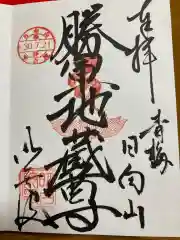 奉拝
青梅
日向山
勝軍地蔵尊
30.7.21